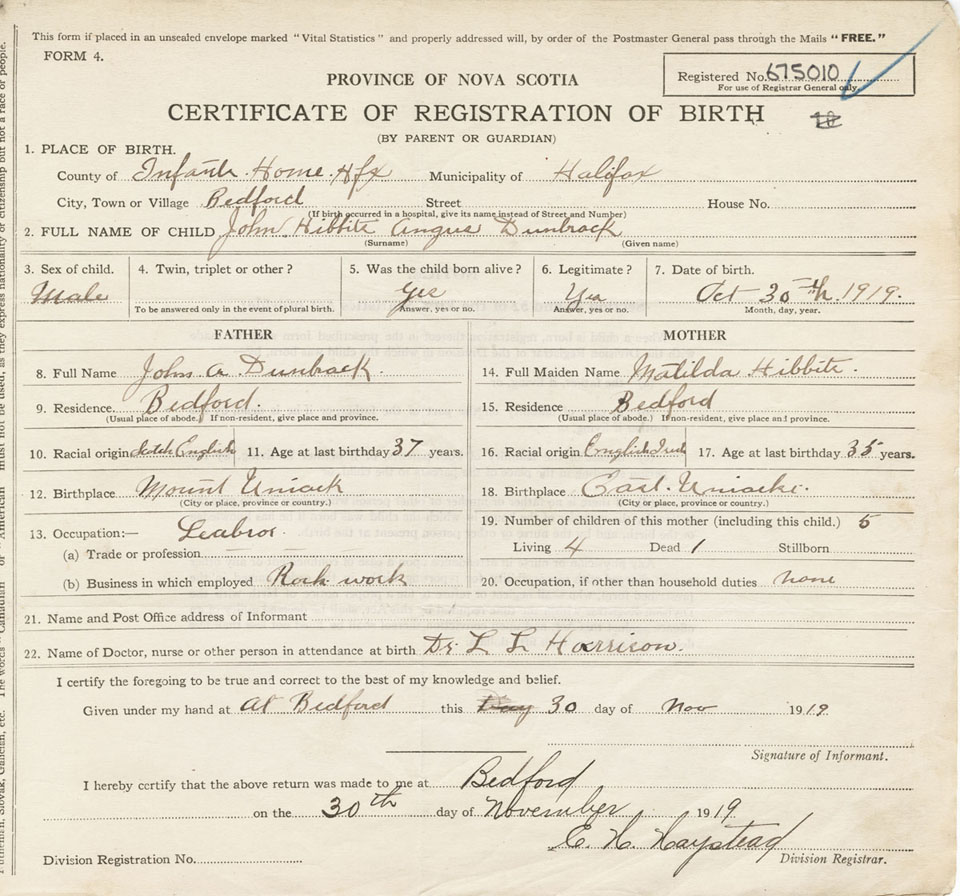 This form if placed in an unsealed envelope marked "Vital Statistics" and properly addressed will, by order of the Postmaster General pass through the Mails "FREE."
FORM 4.
PROVINCE OF NOVA SCOTIA
Registered No. 675010
For use of Registrar General only.
CERTIFICATE OF REGISTRATION OF BIRTH
(BY PARENT OR GUARDIAN)
1. PLACE OF BIRTH.
County of Infants Home Hfx Municipality of Halifax
City, Town or Village Bedford Street House No.
(If birth occurred in a hospital, give its name instead of Street and Number)
2. FULL NAME OF CHILD John Hibbits Angus Dunbrack
(Surname) (Given name)
3. Sex of child. 4. Twin, triplet or other? 5. Was the child born alive? 6. Legitimate? 7. Date of birth.
Male Yes Yes Oct 30th 1919.
To be answered only in the event of plural birth. Answer, yes or no. Answer, yes or no. Month, day, year.
FATHER MOTHER
8. Full Name John A Dunbrack. 14. Full Maiden Name Matilda Hibbits.
9. Residence Bedford. 15. Residence Bedford
(Usual place of abode.) If non-resident, give place and province. (Usual place of abode.) If non-resident, give place and province.
10. Racial origin Scotch English 11. Age at last birthday 37 years. 16. Racial origin English 17. Age at last birthday 35 years.
12. Birthplace Mount Uniack 18. Birthplace East Uniacke.
(City or place, province or country.) (City or place, province or country.)
13. Occupation:— Leabror 19. Number of children of this mother (including this child.) 5
(a) Trade or profession Living 4 Dead 1 Stillborn
(b) Business in which employed Rock work 20. Occupation, if other than household duties none
21. Name and Post Office address of Informant
22. Name of Doctor, nurse or other person in attendance at birth Dr. L L Harrison.
I certify the foregoing to be true and correct to the best of my knowledge and belief.
Given under my hand at at Bedford this 30 day of Nov 1919
Signature of Informant.
I hereby certify that the above return was made to me at Bedford
on the 30th day of November 1919
E. H. Haystead
Division Registration No. Division Registrar.